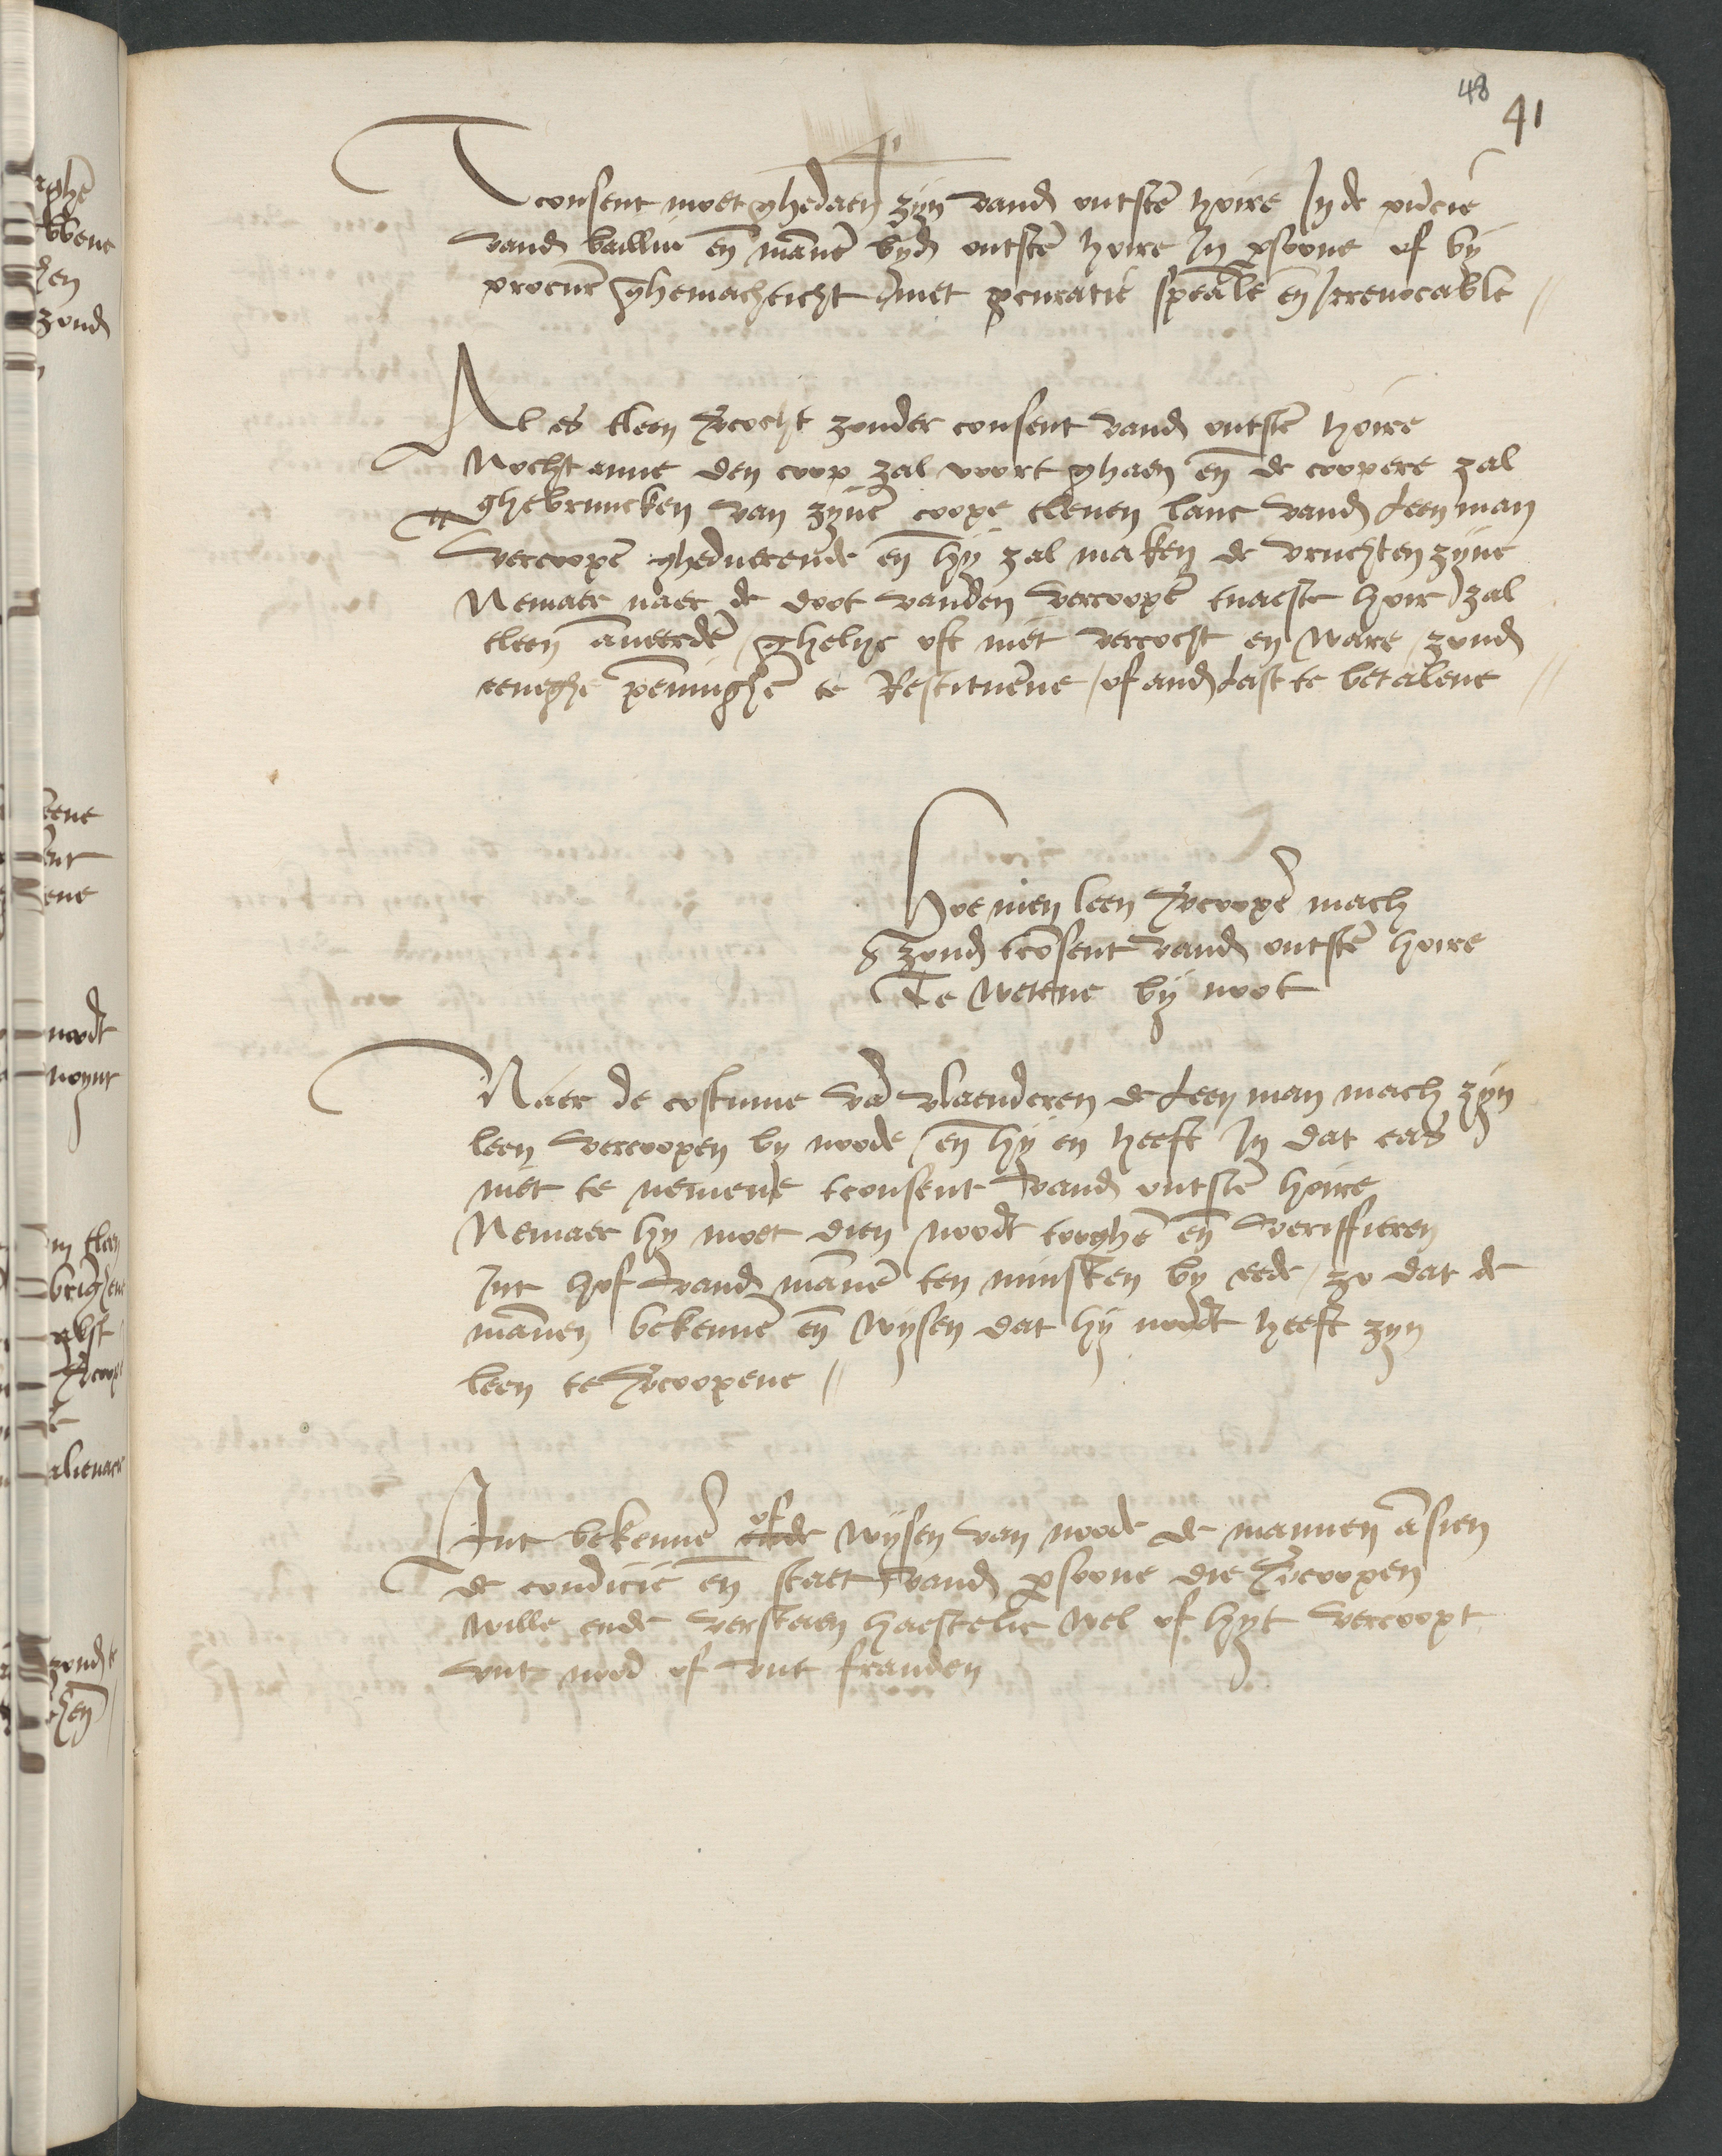 48
41
41
Tconsent moet ghedaen zyn vand outstē hoire In de pñcie
vand bailliu eñ mānē byd outstē hoire In psoone of by
procurē ghemachticht met pcuratie speāle eñ Irrevocable //
Al es tleen vcocht zonder consent vand outstē hoire
Nochtanne den coop zal voort ghaen eñ de coopere zal
ghebruucken van zynē coope tleven lanc vand Leenman
vercoopē ghedueerende eñ hy zal maken de vruchten zyne
Nemaer naer de doot vanden vercoopē tnaeste hoir zal
tleen āneerdē / ghelyc oft niet vercocht en ware / zond
eeneghe penninghē te Restituēne / of and Last te betalene //
Hoe men leen vcoopē mach
zond tcōsent vand outstē hoire
Te wetene by noot
Naer de costume vā vlaenderen de Leenman mach zyn
leen vercoopen by noode / eñ hy en heeft In dat cas
niet te nemene tconsent vand outstē hoire
Nemaer hy moet dien noodt tooghē eñ veriffieren
Int hof vand mānē ten minsten by eede / zo dat de
mānen bekennē eñ wysen dat hy noodt heeft zyn
leen te vcoopene //
Int bekennē of wysen van noode de mannen āsien
de condicie eñ staet vand psoone die vcoopen
wille ende verstaen haestelic wel of hyt vercoopt
vut nood of vut frauden